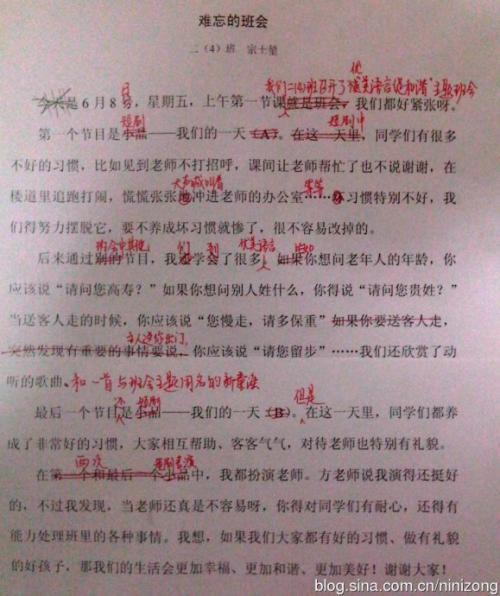 难忘的班会
二（4）班 宗士堃
我们二(4)班召开了"优美语言促和谐"主题班会
今天是6月8号，星期五，上午第一节课就是班会，我们都好紧张呀。
日
短剧 短剧中
第一个节目是小品——我们的一天（A）。在这一天里，同学们有很多
不好的习惯，比如见到老师不打招呼，课间让老师帮忙了也不说谢谢，在
大声喊叫着 等等
楼道里追跑打闹，慌慌张张地冲进老师的办公室……习惯特别不好，我
们得努力摆脱它，要不养成坏习惯就惨了，很不容易改掉的。
们 到 优美语言
后来通过别的节目，我还学会了很多，如果你想问老年人的年龄，你
应该说“请问您高寿？”如果你想问别人姓什么，你得说“请问您贵姓？”
当送客人走的时候，你应该说“您慢走，请多保重”如果你要送客人走，
主人送你出门，
突然发现有重要的事情要说，你应该说“请您留步”……我们还欣赏了动
听的歌曲、和一首与班会主题同名的新童谣
短剧 但是
最后一个节目是小品——我们的一天（B）。在这一天里，同学们都养
成了非常好的习惯，大家相互帮助、客客气气，对待老师也特别有礼貌。
两次 短剧表演
在第一个和最后一个小品中，我都扮演老师。方老师说我演得还挺好
的，不过我发现，当老师还真是不容易呀，你得对同学们有耐心，还得有
能力处理班里的各种事情。我想，如果我们大家都有好的习惯、做有礼貌
的好孩子，那我们的生活会更加幸福、更加和谐、更加美好！谢谢大家！
blog.sina.com.cn/ninizong